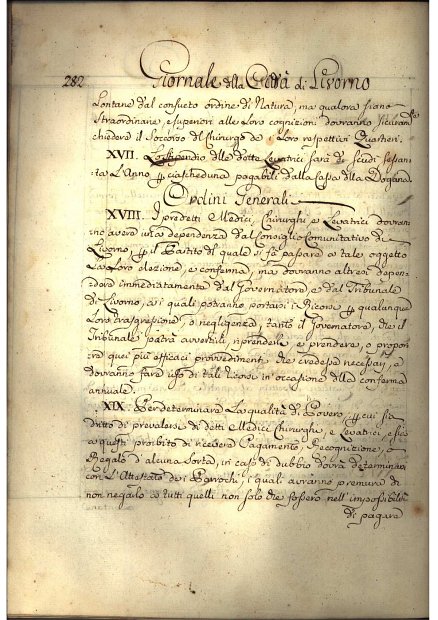 282 Giornale della Città di Livorno
Lontane dal consueto ordine di Natura, ma qualora siano
Straordinarie, e superiori alle Loro cognizioni dovranno
chiedere il Soccorso del Chirurgo de Loro respettivi Quartieri.
XVII. Lo stipendio delle dette Levatrici sarà di Scudi sessan
ta L'Anno p ciascheduna pagabili dalla Cassa della Dogana.
Ordini Generali
XVIII. I predetti Medici, Chirurghi e Levatrici dovran
no avere una dependenza dal Consiglio Comunitativo di
Livorno, p il Partito del quale si fà passare a tale oggetto
La Loro elezione, e conferma, ma dovranno altresì depen-
dere immediatamente dal Governatore, e dal Tribunale
di Livorno, a i quali potranno portarsi i Ricorsi p qualunque
Loro trasgressione, o negligenza, tanto il Governatore, che il
Tribunale potrà avvertirli, riprenderli, e prendere, o propor
re quei più efficaci provvedimenti che credesse necessarj, e
dovranno fare uso di tali ricorsi in occasione della conferma
annuale.
XIX. Per determinare La qualità di Povero, p cui sia
dritto di prevalersi di detti Medici Chirurghi, e Levatrici, e sia
a questi proibito di ricevere Pagamento, Recognizione, o
Regalo d'alcuna Sorta, in caso di dubbio dovrà determinarsi
con L'Attestato dei Parrochi, i quali avranno premura di
non negarlo a tutti quelli non solo che fossero nell'impossibilità
di pagare